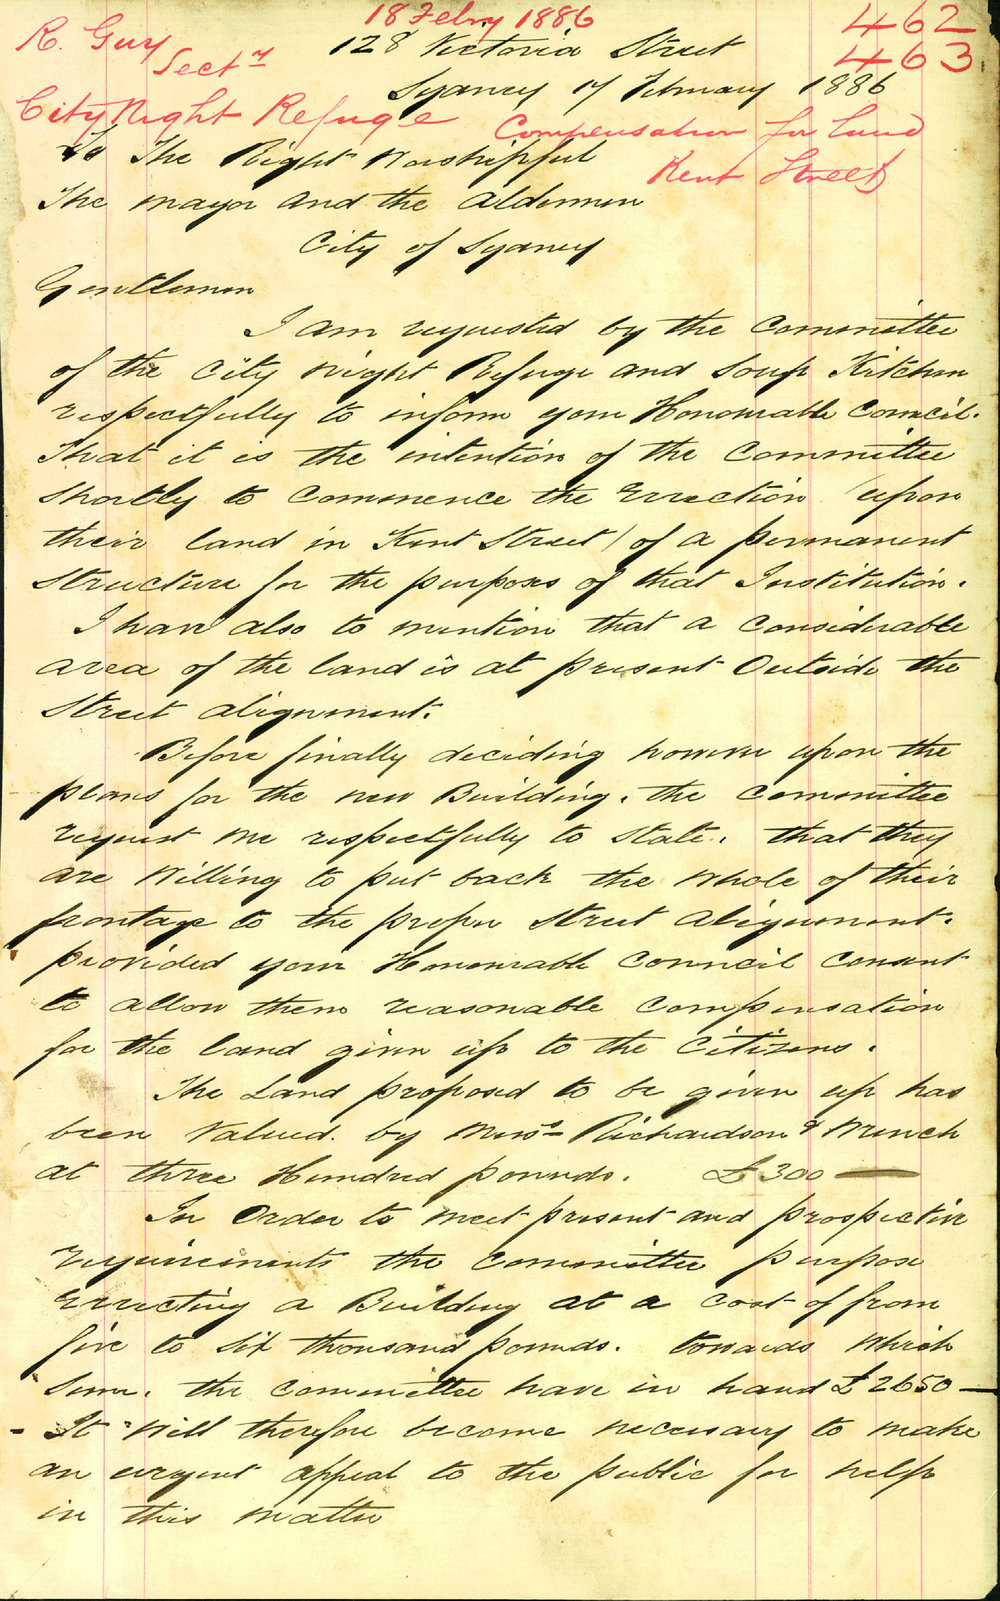 18 Febry 1886
462
R. Guy
Secty
128 Victoria Street
463
Sydney 17 February 1886
City Night Refuge
Compensation for land
To The Right Worshipful
Kent Street
The Mayor and the Aldermen
City of Sydney
Gentlemen
I am requested by the Committee
of the City Night Refuge and Soup Kitchen
respectfully to inform your Honourable Council.
That it is the intention of the Committee
Shortly to Commence the Erection (upon
their land in Kent Street) of a permanent
Structure for the purposes of that Institution.
I have also to mention that a Considerable
area of the land is at present Outside the
Street alignment.
Before finally deciding however upon the
plans for the new Building. the Committee
request me respectfully to State. that they
are Willing to put back the whole of their
frontage to the proper Street alignment.
provided your Honourable Council Consent
to allow them reasonable Compensation
for the land given up to the Citizens.
The Land proposed to be given up has
been Valued. by Messrs Richardson & Wrench
at three Hundred pounds. £300
In Order to meet present and prospective
requirements the Committee purpose
Erecting a Building at a Cost of from
five to Six thousand pounds. towards which
Sum. the Committee have in hand £2650—
- It Will therefore become necessary to make
an urgent appeal to the public for help
in this matter